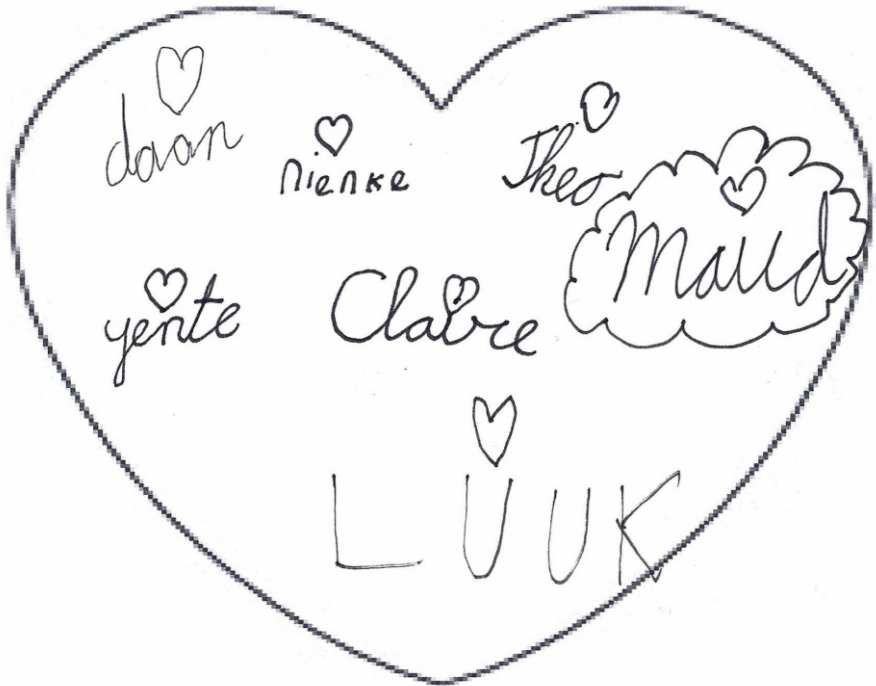 daan
nienke
Theo
Maud
yente
Claire
LUUK